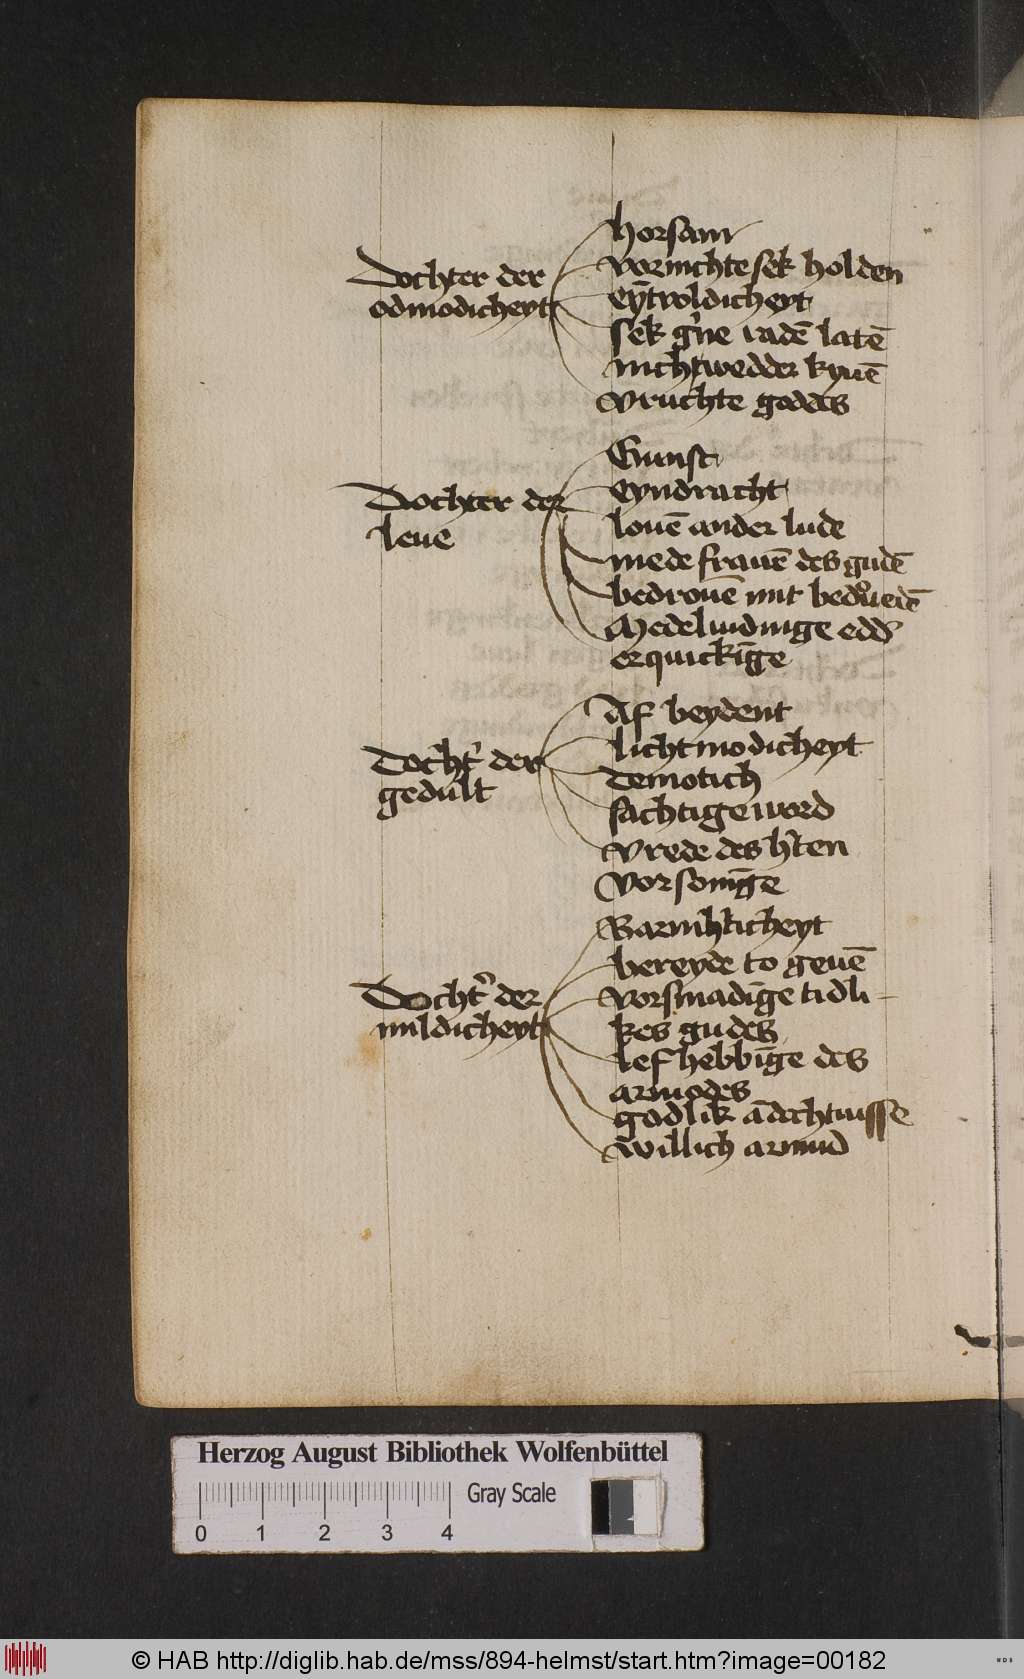 Dochter der
odmodicheyt
horsam
vornichte sek holden
eȳtvoldicheyt
sek g'ne radē latē
nicht wedder kyuē
vruchte godes
Dochter der
leue
Gunst
eyndracht
louē ander lude
mede frauē des gudē
bedrouē mit
Medelindinge edd'
erquickīge
Docht' der
gedult
Af beydent
lichtmodicheyt
Demotich
sachtige word
vrede des h'ten
vorsonīge
Docht' der
mildicheyt
Barmh'ticheyt
bereyde to geuē
vorsmadīge tidli-
kes gudes
lef hebbīge des
armodes
godlik ādechtnisse
willich armud
Herzog August Bibliothek Wolfenbüttel
Gray Scale
0 1 2 3 4
© HAB http://diglib.hab.de/mss/894-helmst/start.htm?image=00182